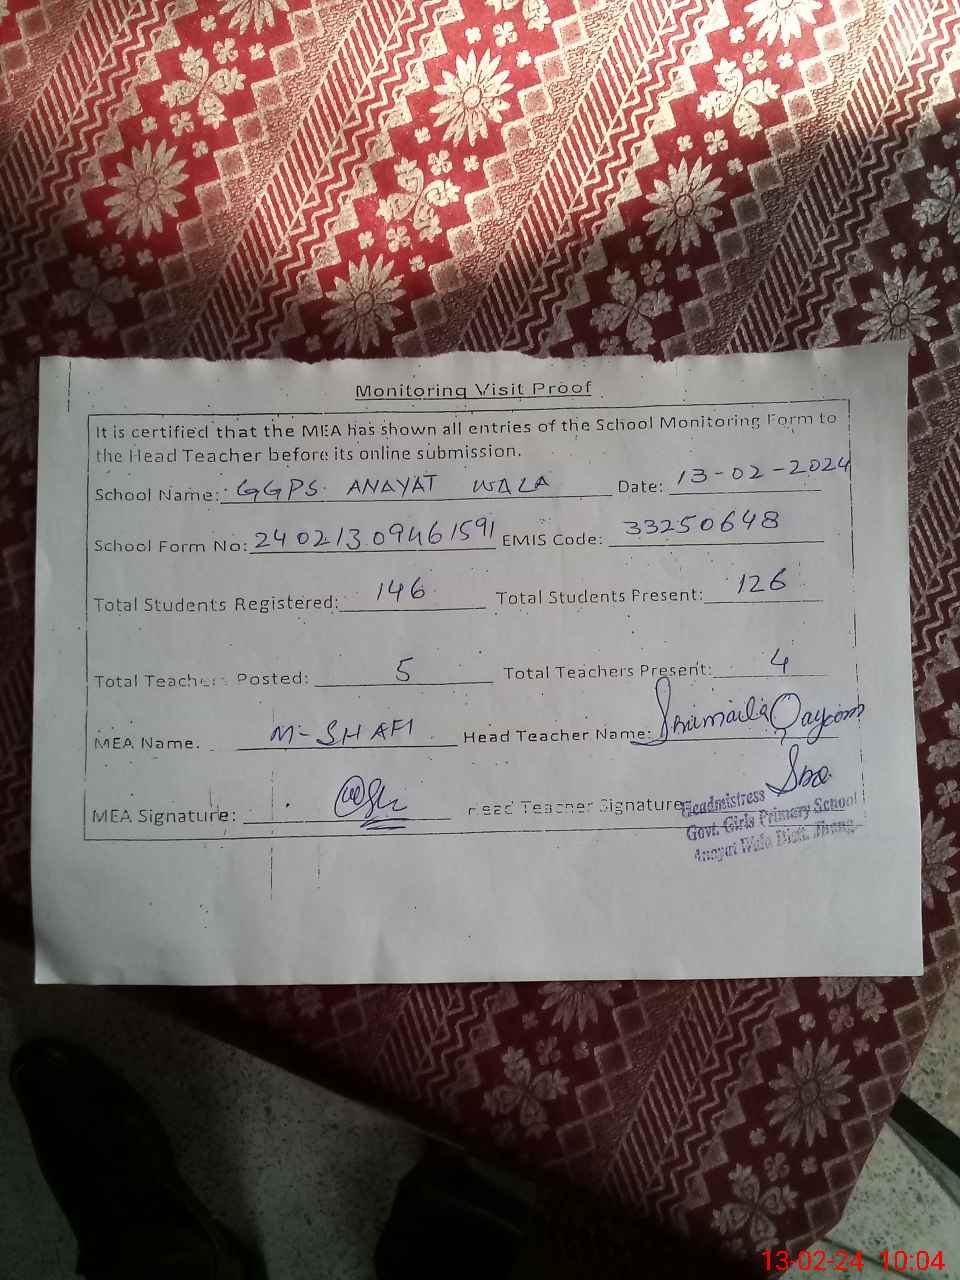 Monitoring Visit Proof
It is certified that the MEA has shown all entries of the School Monitoring Form to
the Head Teacher before its online submission.
School Name: GGPS. ANAYAT WALA Date: 13-02-2024
School Form No: 24021309461591 EMIS Code: 33250648
Total Students Registered: 146 Total Students Present: 126
Total Teachers Posted: 5 Total Teachers Present: 4
MEA Name. M-SHAFI Head Teacher Name: Shumaila Qayoom
MEA Signature: Head Teacher Signature:
Headmistress
Govt. Girls Primary School
Anayat Wala Distt. Jhang
13-02-24 10:04